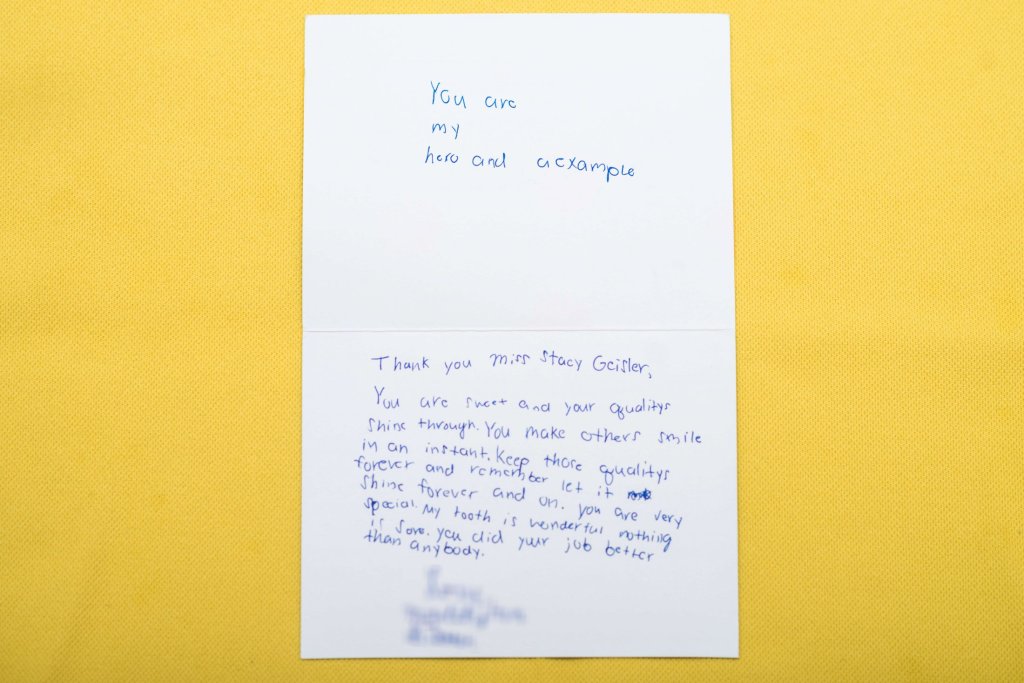 You are
my
hero and a example
Thank you miss Stacy Geisler,
You are sweet and your qualitys
shine through. You make others smile
in an instant. Keep those qualitys
forever and remember let it
shine forever and on. you are very
special. My tooth is wonderful nothing
is sore. you did your job better
than anybody.